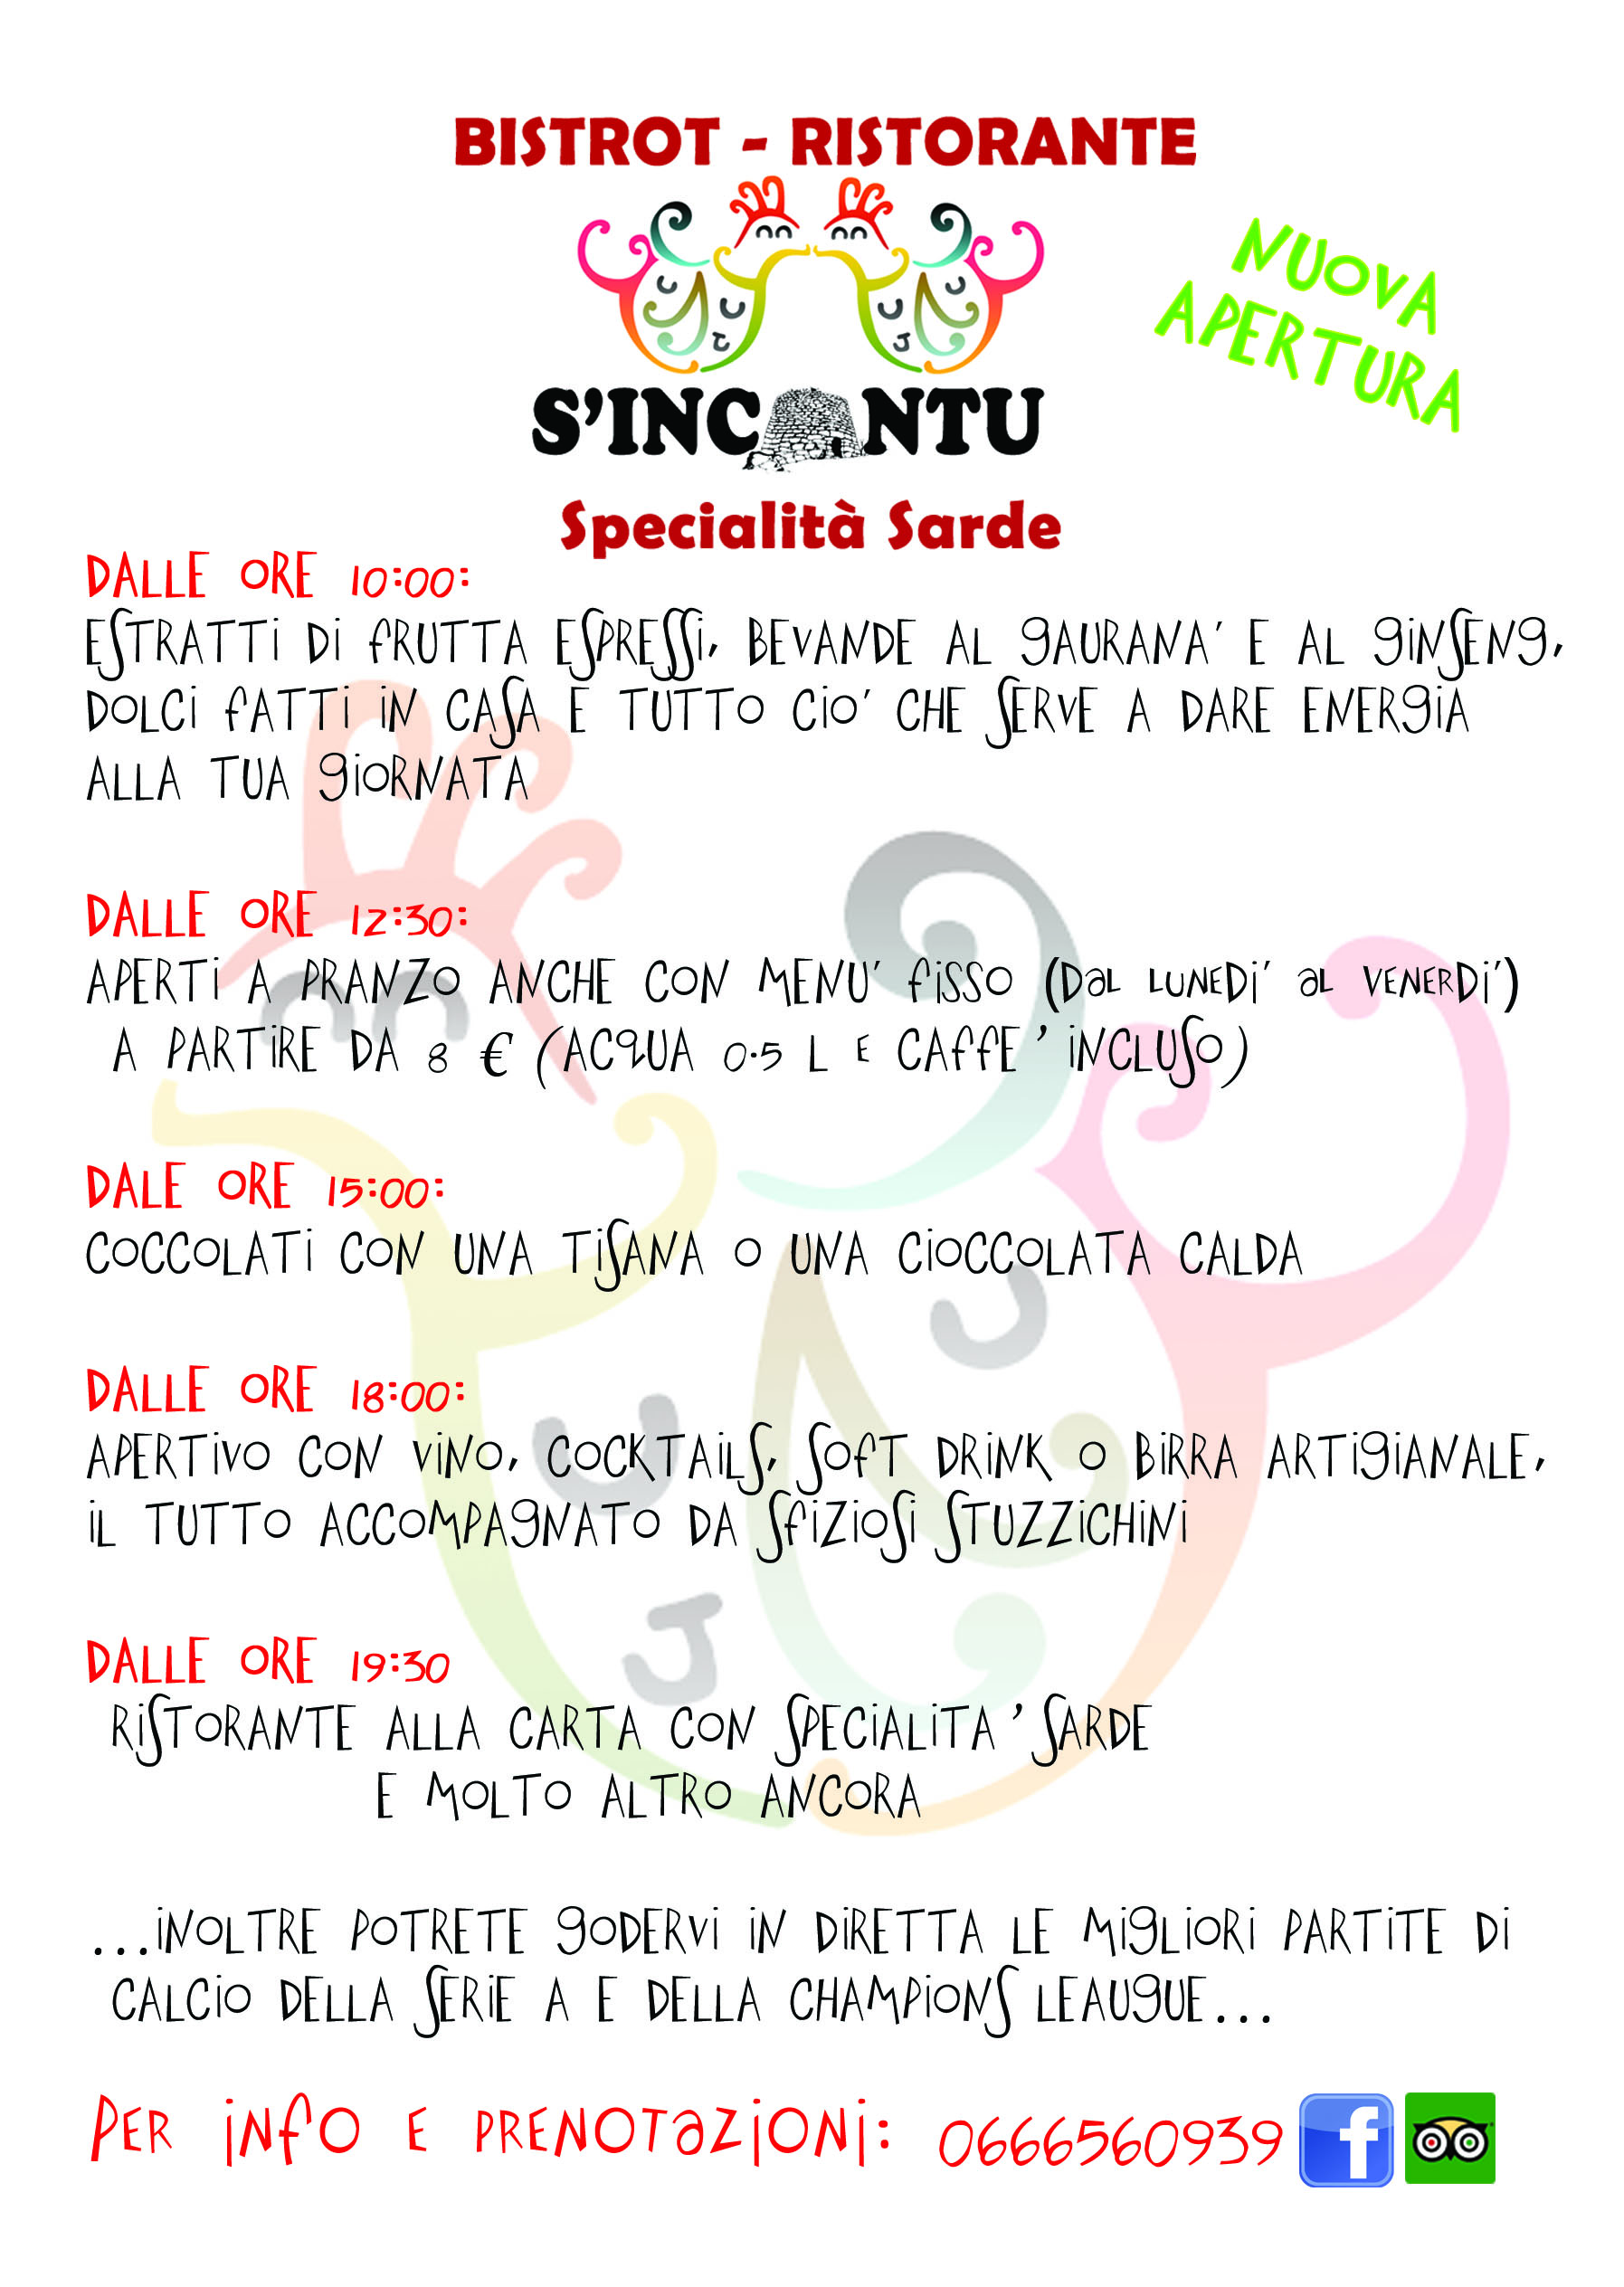 BISTROT - RISTORANTE
NUOVA
APERTURA
S'INCANTU
Specialità Sarde
DALLE ORE 10:00:
ESTRATTI DI FRUTTA ESPRESSI, BEVANDE AL GAURANA' E AL GINSENG,
DOLCI FATTI IN CASA E TUTTO CIO' CHE SERVE A DARE ENERGIA
ALLA TUA GIORNATA
DALLE ORE 12:30:
APERTI A PRANZO ANCHE CON MENU' FISSO (DAL LUNEDI' AL VENERDI')
A PARTIRE DA 8 € (ACQUA 0.5 L E CAFFE' INCLUSO)
DALE ORE 15:00:
COCCOLATI CON UNA TISANA O UNA CIOCCOLATA CALDA
DALLE ORE 18:00:
APERTIVO CON VINO, COCKTAILS, SOFT DRINK O BIRRA ARTIGIANALE,
IL TUTTO ACCOMPAGNATO DA SFIZIOSI STUZZICHINI
DALLE ORE 19:30
RISTORANTE ALLA CARTA CON SPECIALITA' SARDE
E MOLTO ALTRO ANCORA
...INOLTRE POTRETE GODERVI IN DIRETTA LE MIGLIORI PARTITE DI
CALCIO DELLA SERIE A E DELLA CHAMPIONS LEAUGUE...
PER INFO E PRENOTAZIONI: 0666560939 f